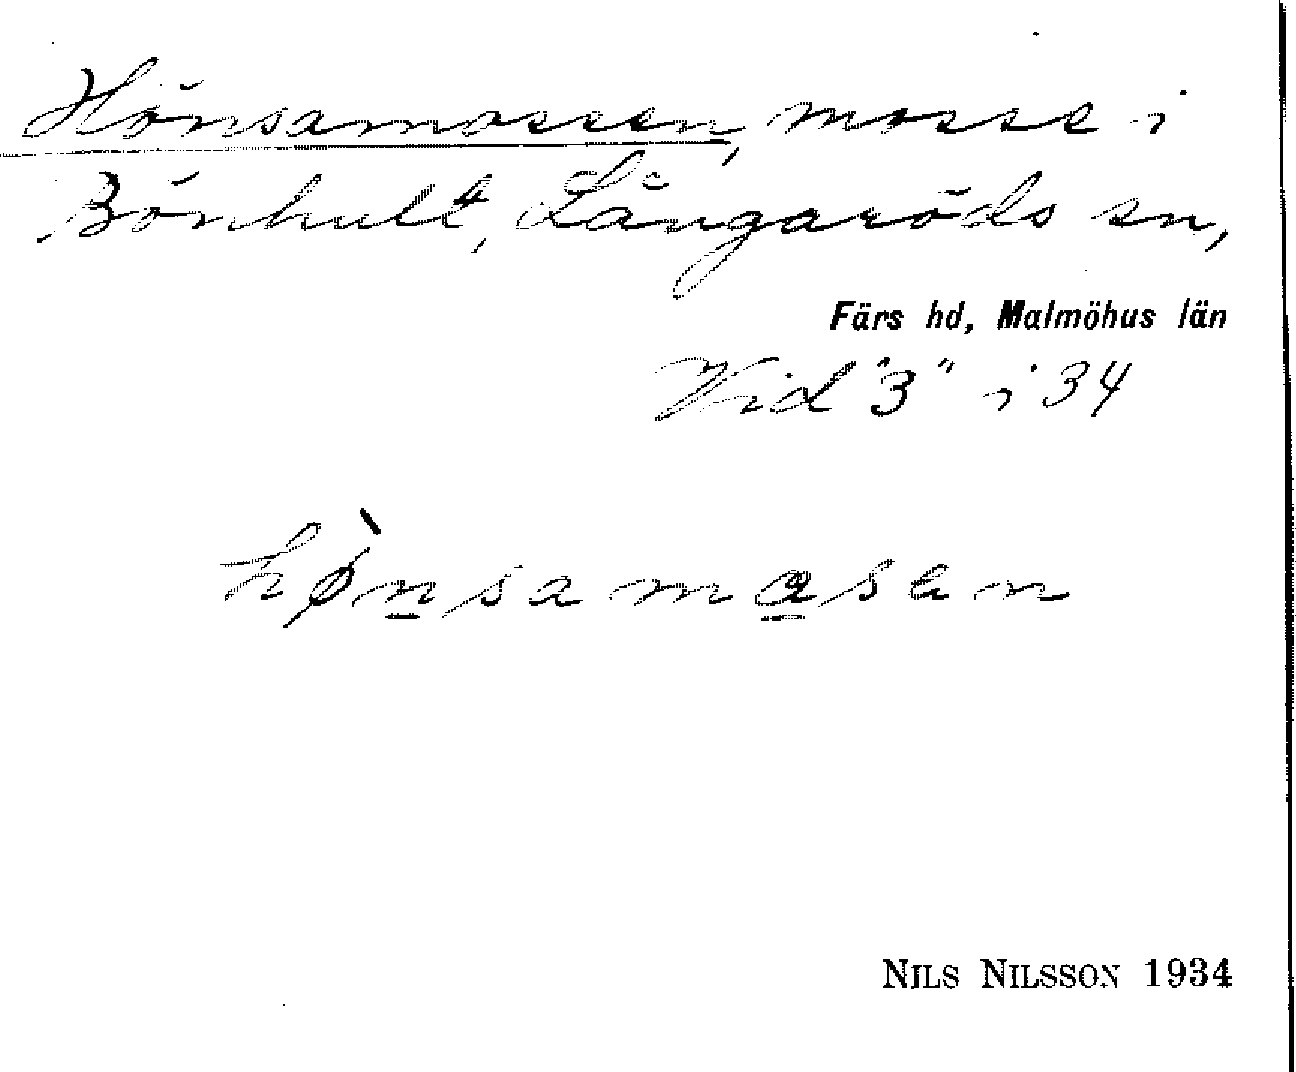 Hönsamossen, mosse i
Bönhult, Långaröds sn,
Färs hd, Malmöhus län
Vid "3" i 34
hø̀nsamasen
NILS NILSSON 1934